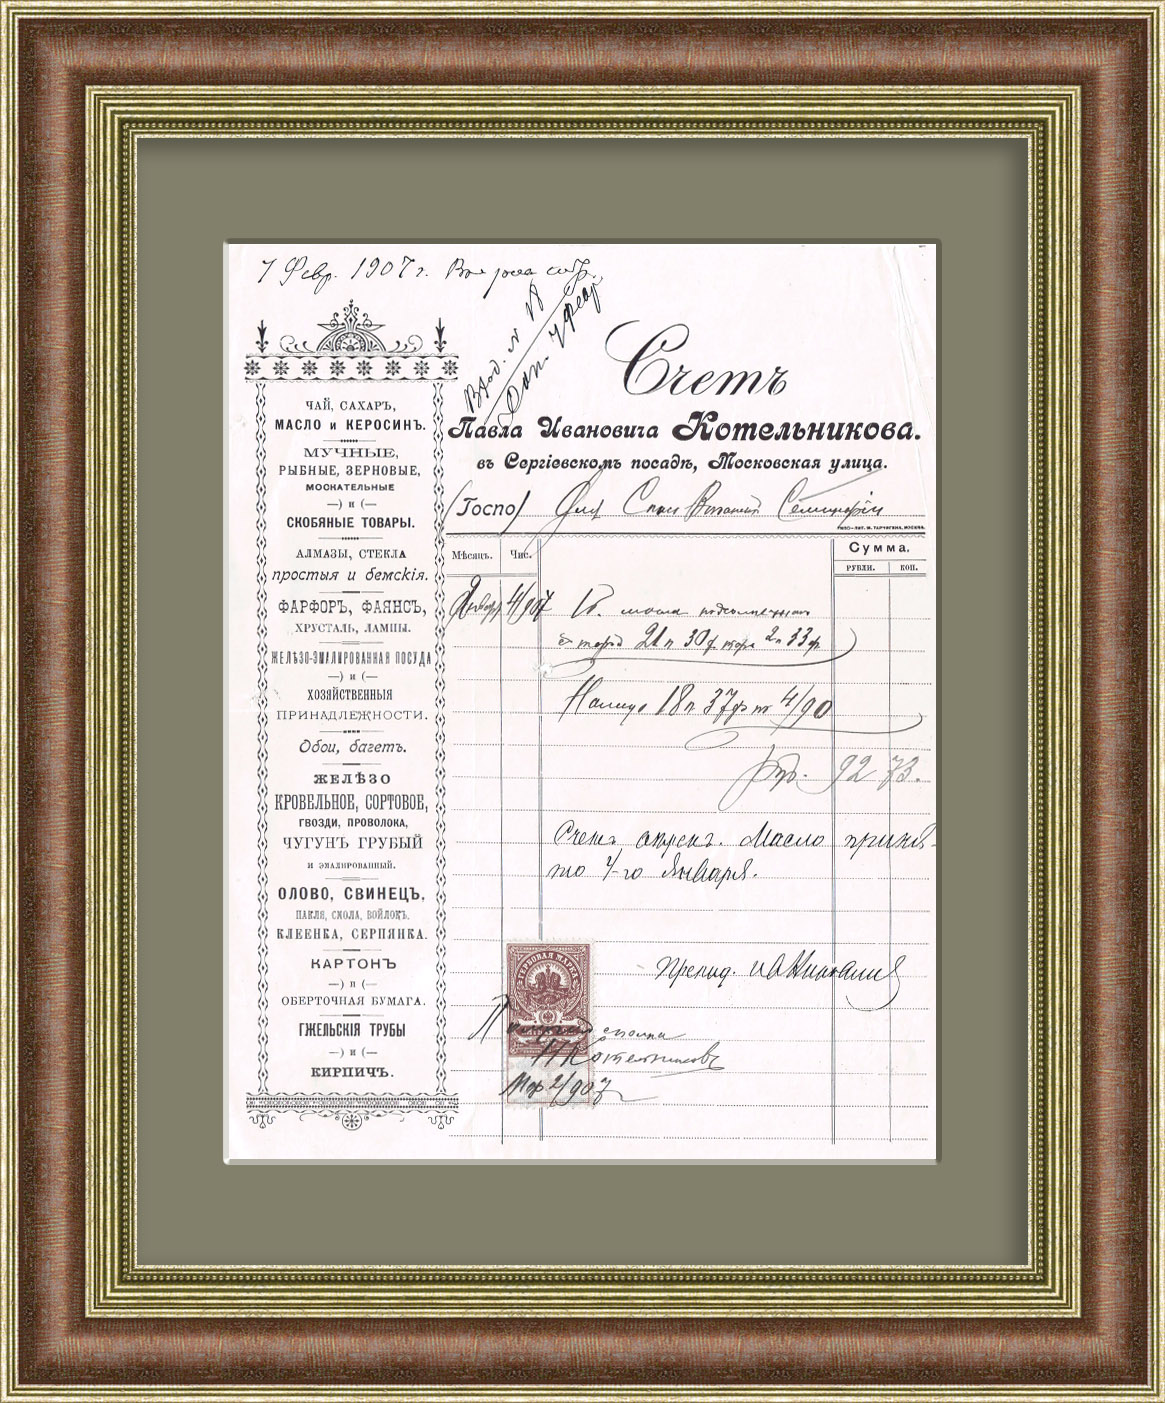 7 Февр. 1907 г.
Вход. № 18
7 февр.
Счетъ
Павла Ивановича Котельникова.
въ Сергіевскомъ посадѣ, Московская улица.
(Госпо) для Спасо Виѳанской Семинаріи
ТИПО-ЛИТ. И. ТАРЧИГИНА, МОСКВА.
Мѣсяцъ. Чис. Сумма.
РУБЛИ. КОП.
ЧАЙ, САХАРЪ,
МАСЛО и КЕРОСИНЪ.
МУЧНЫЕ,
РЫБНЫЕ, ЗЕРНОВЫЕ,
МОСКАТЕЛЬНЫЕ
—) и (—
СКОБЯНЫЕ ТОВАРЫ.
АЛМАЗЫ, СТЕКЛА
простыя и бемскія.
ФАРФОРЪ, ФАЯНСЪ,
ХРУСТАЛЬ, ЛАМПЫ.
ЖЕЛѢЗО-ЭМАЛИРОВАННАЯ ПОСУДА
—) и (—
ХОЗЯЙСТВЕННЫЯ
ПРИНАДЛЕЖНОСТИ.
Обои, багетъ.
ЖЕЛѢЗО
КРОВЕЛЬНОЕ, СОРТОВОЕ,
ГВОЗДИ, ПРОВОЛОКА,
ЧУГУНЪ ГРУБЫЙ
И ЭМАЛИРОВАННЫЙ.
ОЛОВО, СВИНЕЦЪ,
ПАКЛЯ, СМОЛА, ВОЙЛОКЪ,
КЛЕЕНКА, СЕРПЯНКА.
КАРТОНЪ
—) и (—
ОБЕРТОЧНАЯ БУМАГА.
ГЖЕЛЬСКІЯ ТРУБЫ
—) и (—
КИРПИЧЪ.
Январ 4/907 масла подсолнечнаго
21 п 30 ф 2 п 33 ф
18 п 37 ф 4/90
руб. 92 73.
Счетъ вѣренъ. Масло приня-
то 4-го Января.
ГЕРБОВАЯ МАРКА
сполна
П Котельниковъ
Мар 2/907